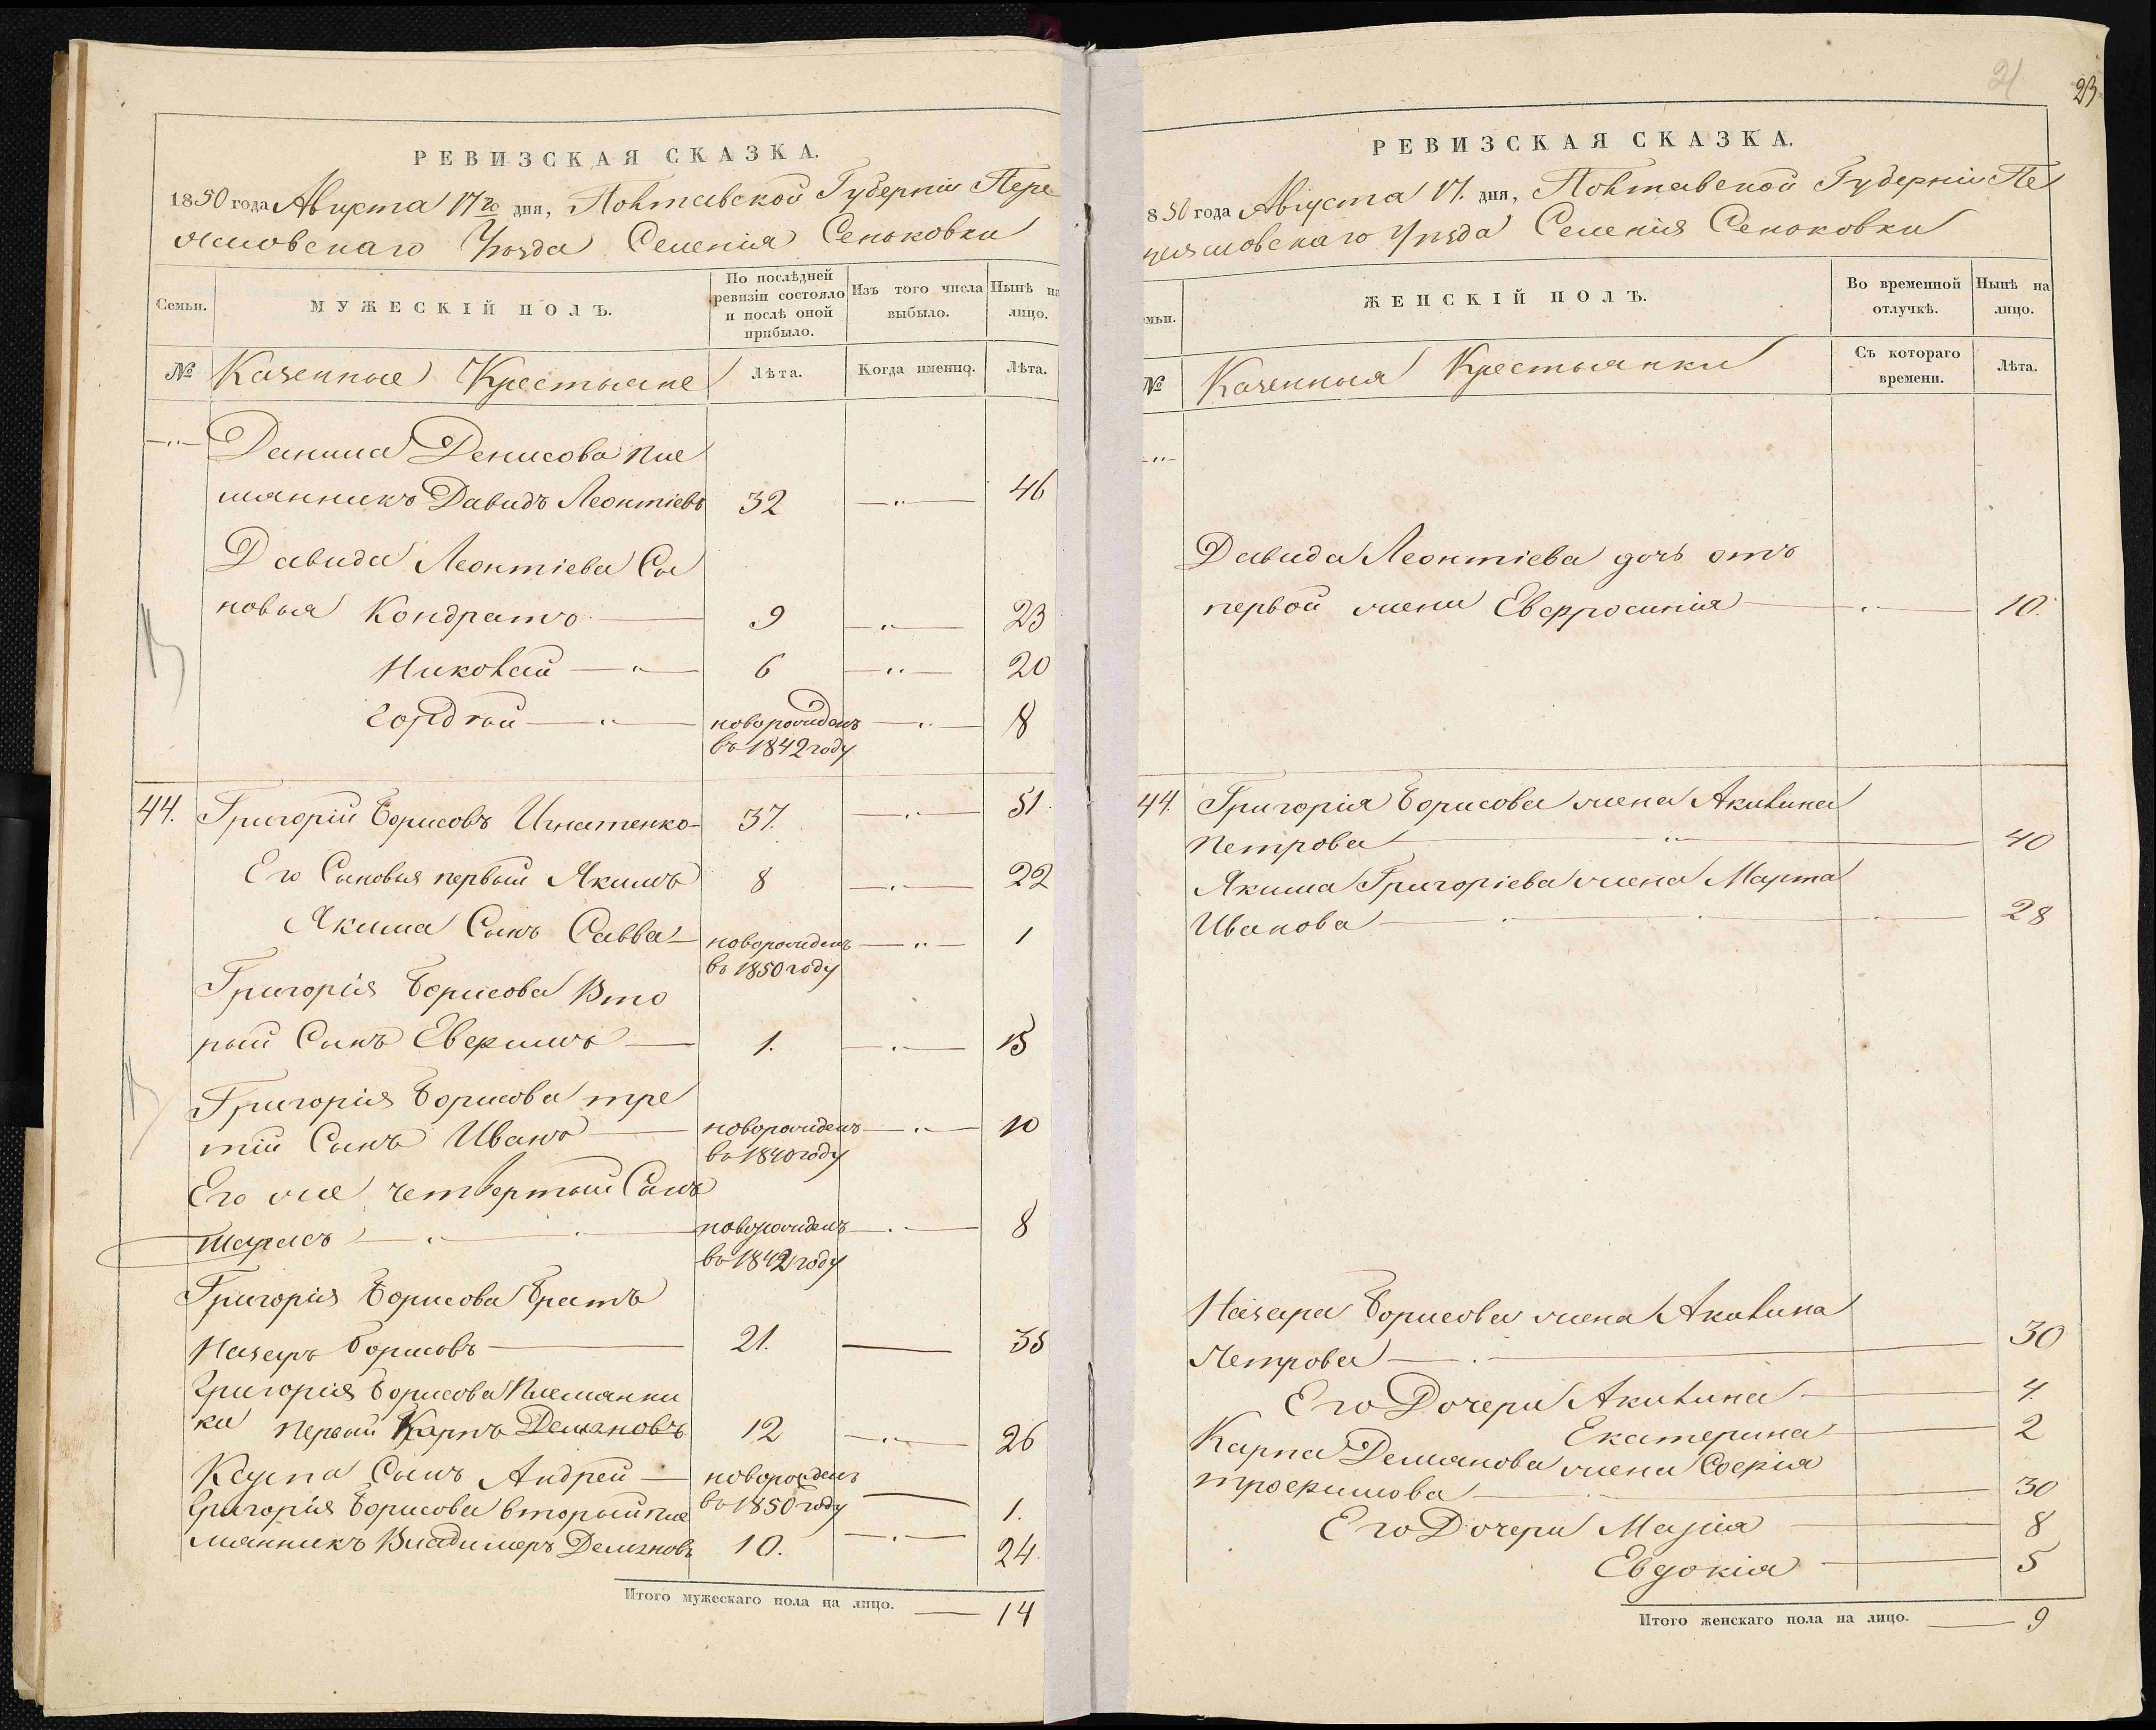 РЕВИЗСКАЯ СКАЗКА.
1850 года Августа 17го дня, Полтавской Губерніи Пере
яславскаго Уѣзда Селенія Сеньковки
Семьи.
МУЖЕСКІЙ ПОЛЪ.
По послѣдней
ревизіи состояло
и послѣ оной
прибыло.
Изъ того числа
выбыло.
Нынѣ на
лицо.
№
Казенные Крестьяне
Лѣта.
Когда именно.
Лѣта.
Данила Денисова пле
мянникъ Давидъ Леонтіевъ 32 46
Давида Леонтіева Сы
новья Кондратъ 9 23
Николай 6 20
Гордѣй новорожденъ 8
въ 1842 году
44. Григорій Борисовъ Игнатенко 37. 51.
Его Сыновья первый Якимъ 8 22
Якима Сынъ Савва новорожденъ 1
въ 1850 году
Григорія Борисова Вто
рый Сынъ Евфимъ 1. 15
Григорія Борисова тре
тій Сынъ Иванъ новорожденъ 10
въ 1840 году
Его же четвертый Сынъ
Тарасъ новорожденъ 8
въ 1842 году
Григорія Борисова Братъ
Назаръ Борисовъ 21. 35
Григорія Борисова Племянни
ки первый Карпъ Демяновъ 12 26
Карпа Сынъ Андрей новорожденъ
въ 1850 году 1.
Григорія Борисова вторый пле
мянникъ Владимеръ Демяновъ 10. 24.
Итого мужескаго пола на лицо. 14
21
23
РЕВИЗСКАЯ СКАЗКА.
850 года Августа 17. дня, Полтавской Губерніи Пе
реяславскаго Уѣзда Селенія Сеньковки
мьи.
ЖЕНСКІЙ ПОЛЪ.
Во временной
отлучкѣ.
Нынѣ на
лицо.
№
Казенныя Крестьянки
Съ котораго
времени.
Лѣта.
Давида Леонтіева дочь отъ
первой жены Евфросинія 10.
44. Григорія Борисова жена Акилина
Петрова 40
Якима Григоріева жена Марта
Иванова 28
Назара Борисова жена Акилина
Петрова 30
Его Дочери Акилина 4
Екатерина 2
Карпа Демянова жена Софія
Трофимова 30
Его Дочери Марія 8
Евдокія 5
Итого женскаго пола на лицо. 9